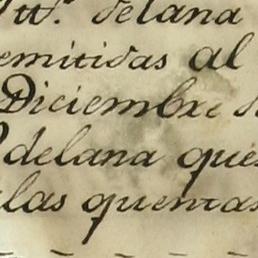 delana
emitidas al
Diciembre
delana que
las quentas